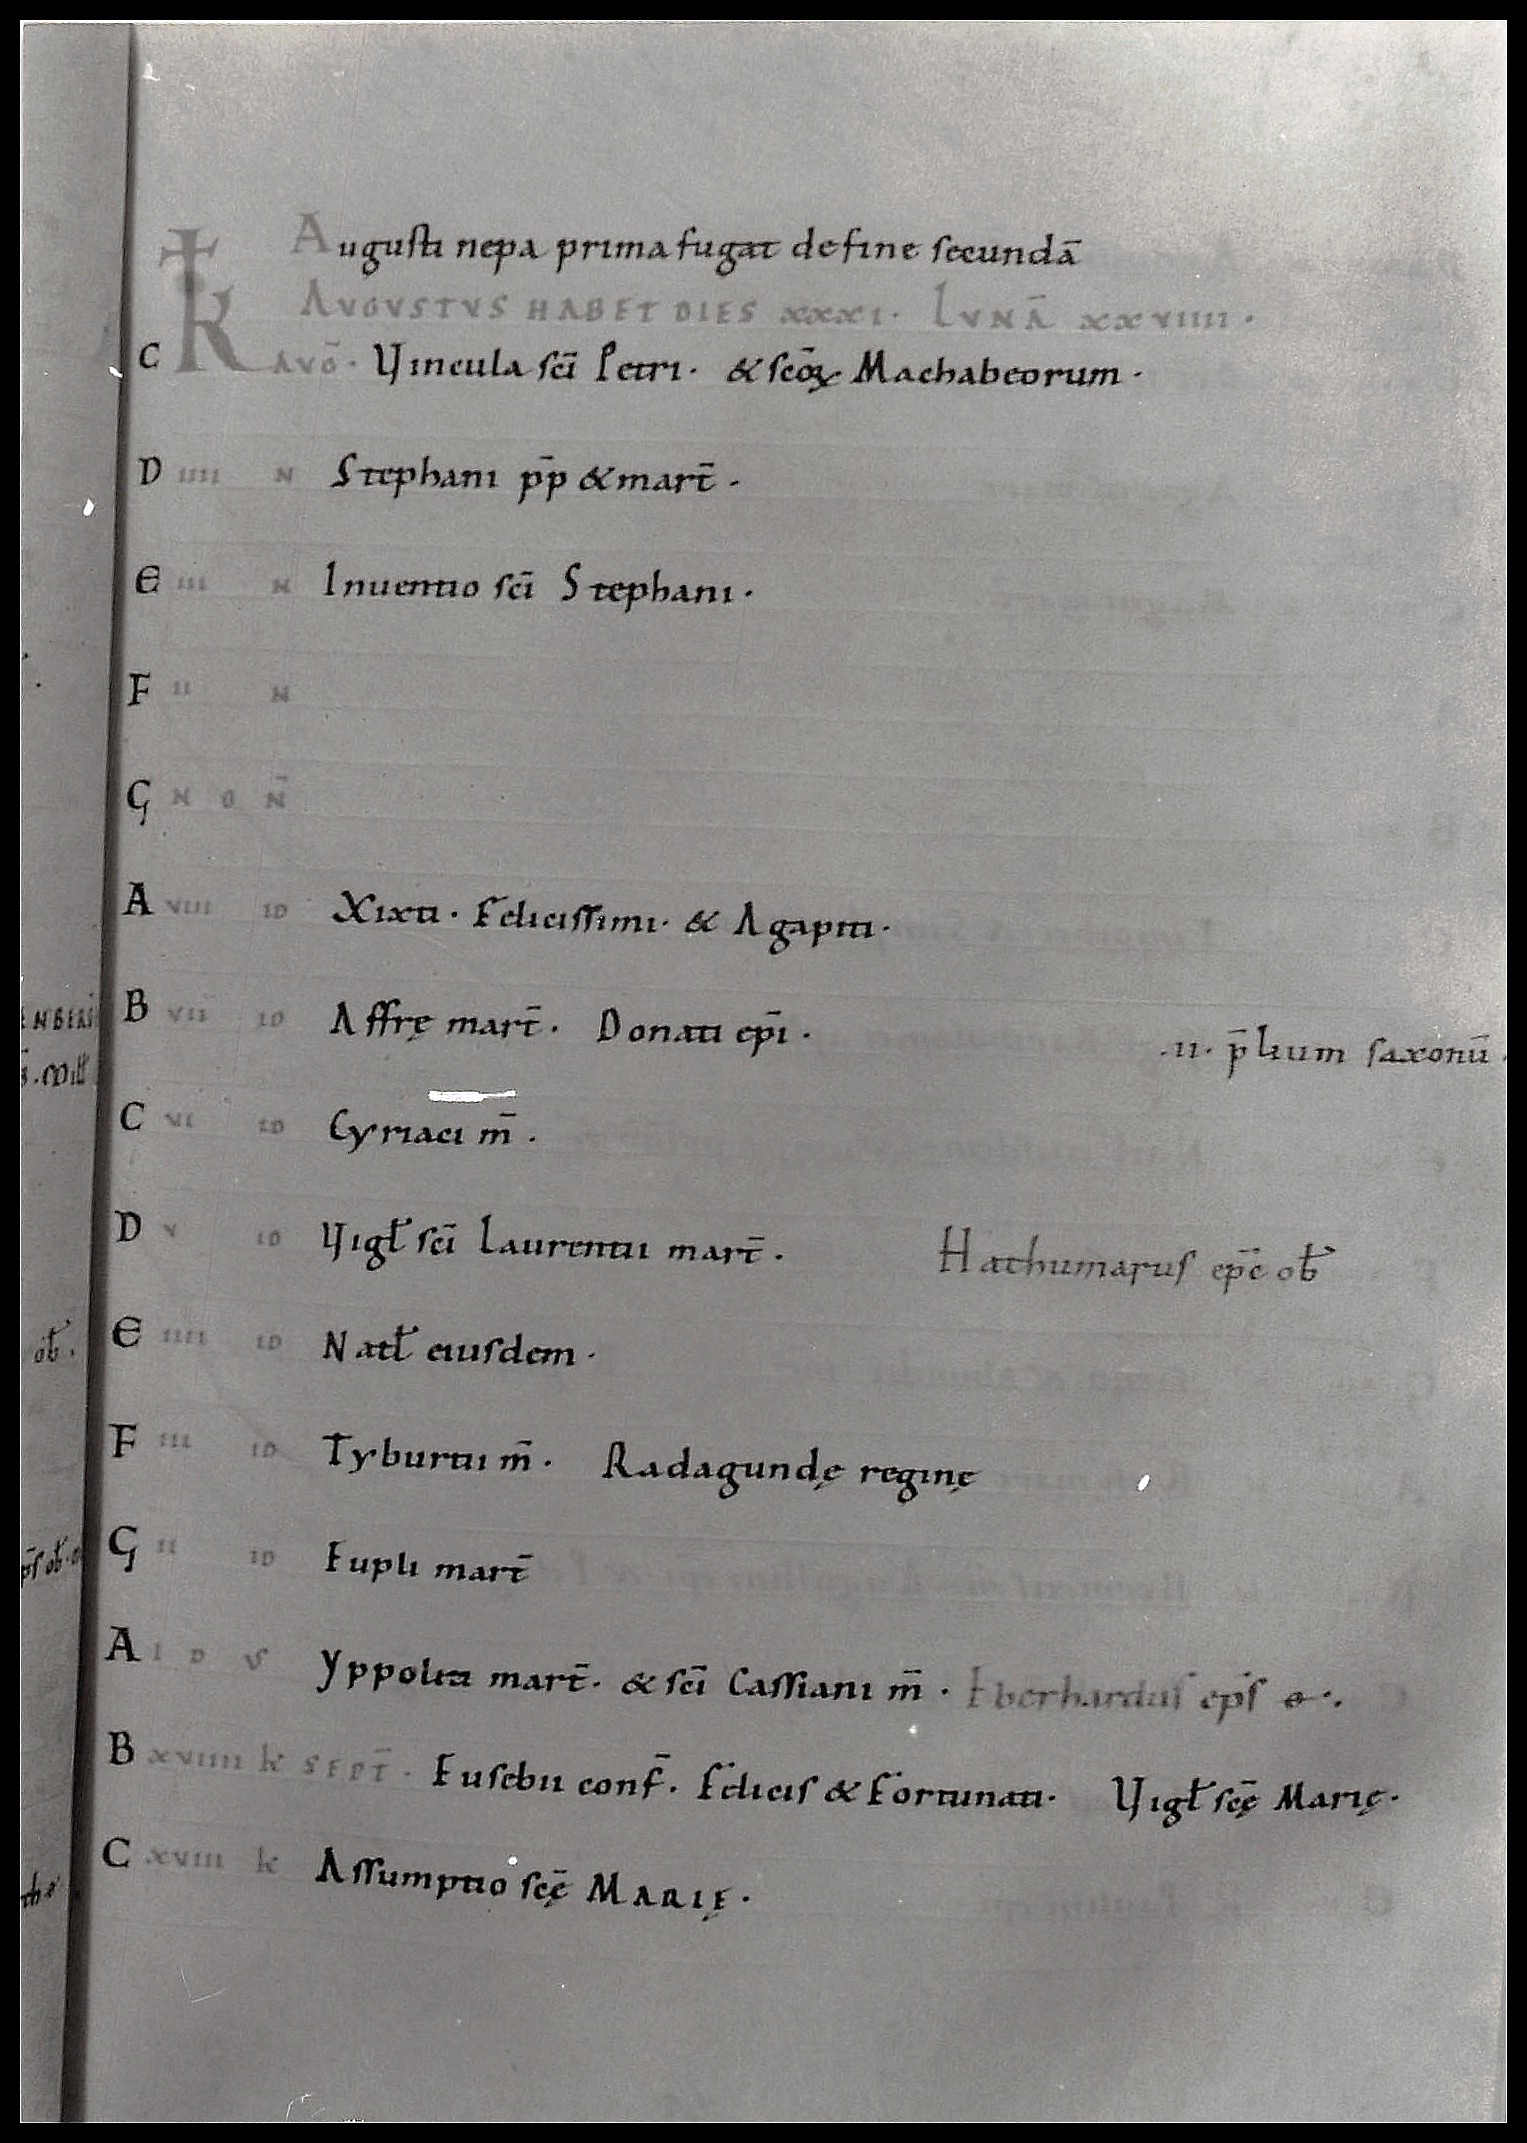 Augusti nepa prima fugat de fine secundā
AVGVSTVS HABET DIES XXXI. LVNĀ XXVIIII.
C K AVḠ. Vincula scī Petri. & scōꝝ Machabeorum.
D IIII N Stephani p̄p & mart̄.
E III N Inuentio scī Stephani.
F II N
G N O N̄
A VIII ID Xixti. Felicissimi. & Agapiti.
B VII ID Affrę mart̄. Donati ep̄i. .II. p̄lium saxonū.
C VI ID Cyriaci m̄.
D V ID Vigł scī Laurentii mart̄. Hathumarus ep̄c ob̄
E IIII ID Natł eiusdem.
F III ID Tyburtii m̄. Radagundę reginę
G II ID Eupli mart̄
A I D V̄S Yppoliti mart̄. & scī Cassiani m̄. Eberhardus ep̄s o.
B XVIIII K SEPT̄. Eusebii conf̄. Felicis & Fortunati. Vigł scę̄ Marię.
C XVIII K Assumptio scę̄ MARIĘ.